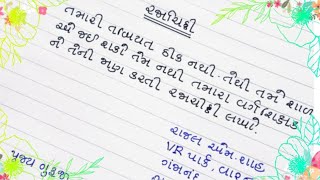 રજાચિઠ્ઠી
તમારી તબિયત ઠીક નથી. તેથી તમે શાળ
એ જઈ શકો તેમ નથી તમારા વર્ગ શિક્ષક
ને તેની જાણ કરતી રજાચિઠ્ઠી લખો.
રાજલ એમ. શાહ
VR પાર્ક,
પૂજ્ય ગુરુજી